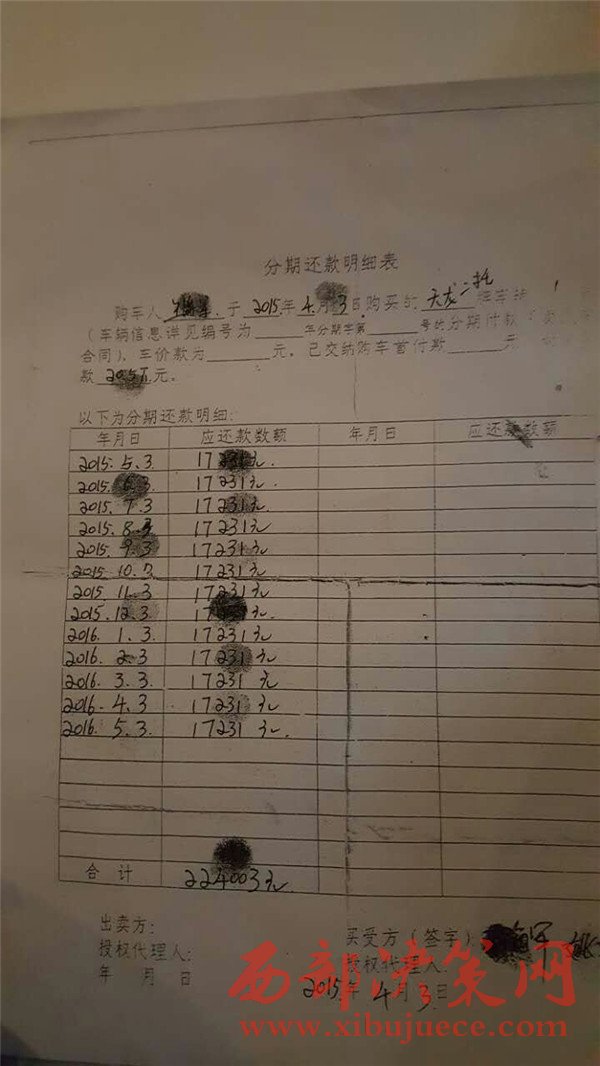 分期还款明细表
购车人 于 2015年 4月 3日购买的 天龙二拖 牌车
(车辆信息详见编号为 年分期字第 号的分期付款(
合同),车价款为 元。已交纳购车首付款 元
款 元。
以下为分期还款明细:
年月日 应还款数额 年月日 应还款数额
2015.5.3 17231元.
2015.6.3 17231元
2015.7.3 17231元
2015.8.3 17231元
2015.9.3 17231元
2015.10.3 17231元
2015.11.3 17231元
2015.12.3 17231元
2016.1.3 17231元
2016.2.3 17231元
2016.3.3 17231元
2016.4.3 17231元
2016.5.3. 17231元.
合 计 224003元
出卖方: 买受方(签字)
授权代理人: 授权代理人:
年 月 日 2015年 4月 3日
西部决策网
www.xibujuece.com